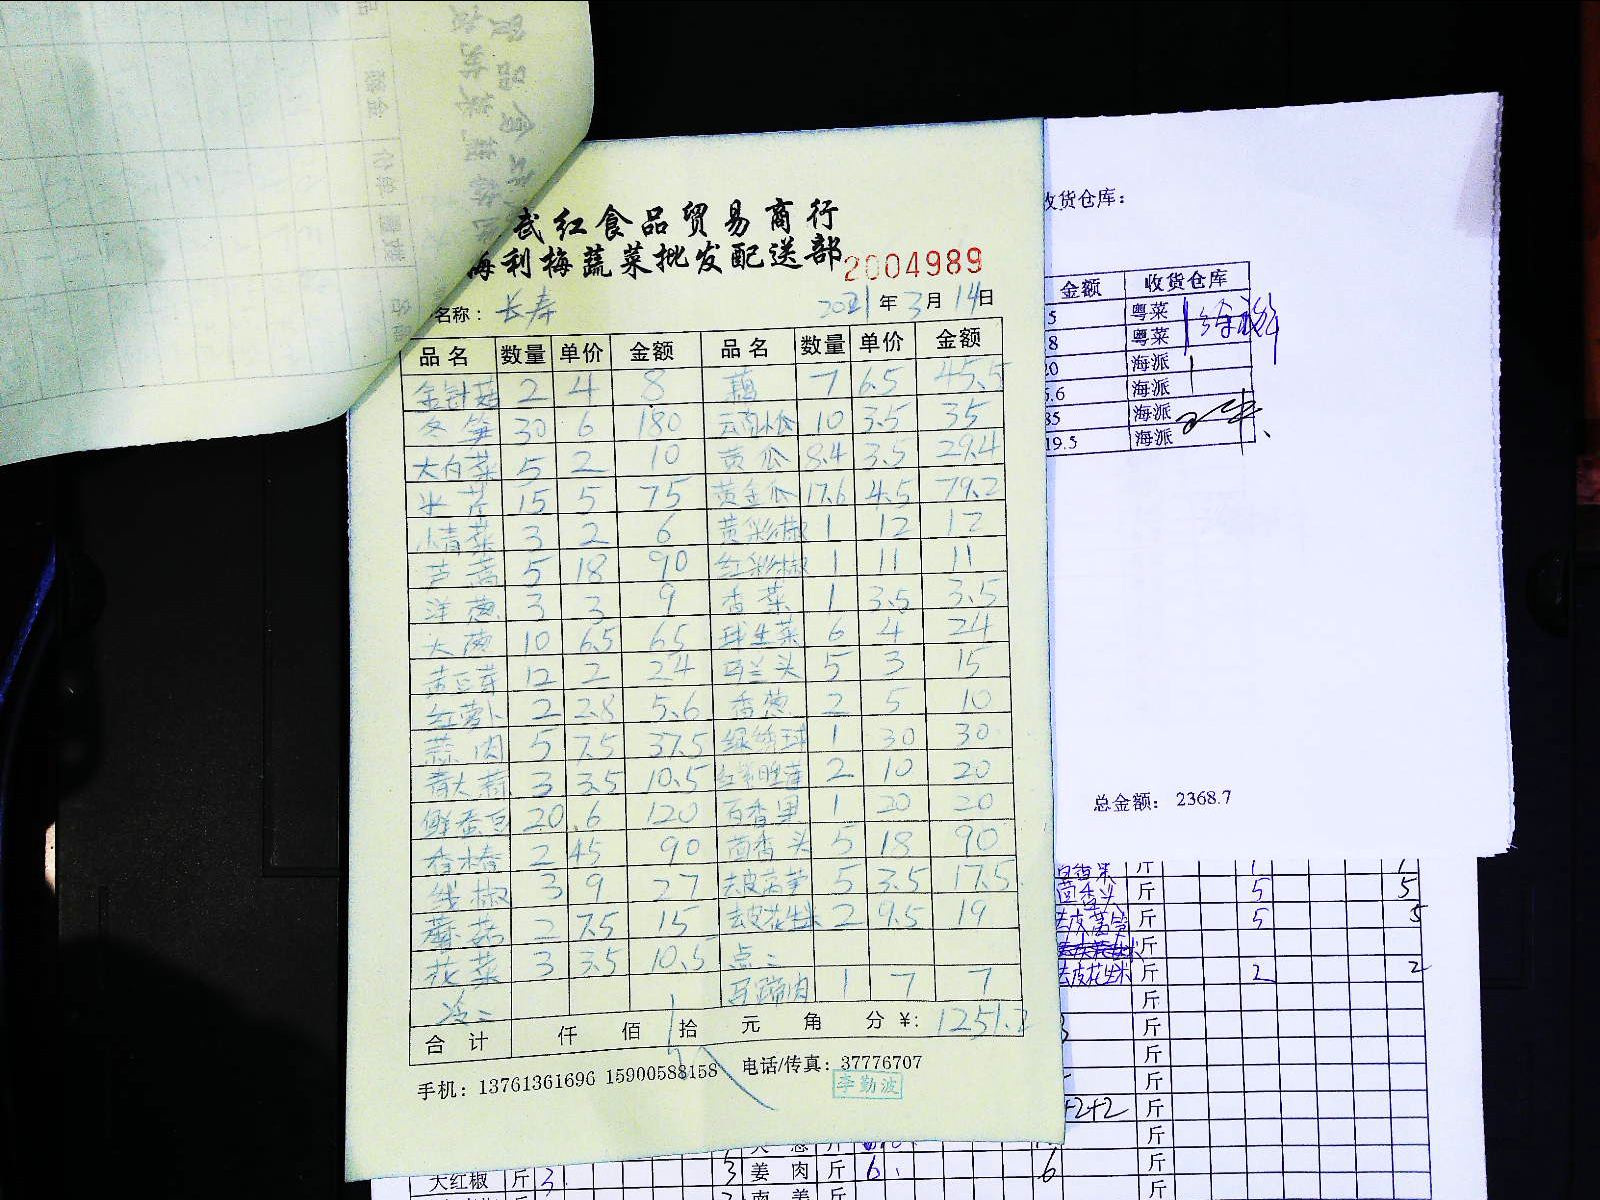 武红食品贸易商行
海利梅蔬菜批发配送部 2004989
名称： 长寿 2021年3月14日
品名 数量 单价 金额 品名 数量 单价 金额
金针菇 2 4 8 藕 7 6.5 45.5
冬笋 30 6 180 云南小瓜 10 3.5 35
大白菜 5 2 10 黄瓜 8.4 3.5 29.4
15 5 75 黄金瓜 17.6 4.5 79.2
小青菜 3 2 6 黄彩椒 1 12 12
芦蒿 5 18 90 红彩椒 1 11 11
洋葱 3 3 9 香菜 1 3.5 3.5
大葱 10 6.5 65 球生菜 6 4 24
黄豆芽 12 2 24 马兰头 5 3 15
红萝卜 2 2.8 5.6 香葱 2 5 10
蒜肉 5 7.5 37.5 绿绣球 1 30 30
青大蒜 3 3.5 10.5 2 10 20
鲜蚕豆 20 6 120 百香果 1 20 20
香椿 2 45 90 茴香头 5 18 90
线椒 3 9 27 去皮莴笋 5 3.5 17.5
蘑菇 2 7.5 15 去皮花生米 2 9.5 19
花菜 3 3.5 10.5 点：
冷： 1 7 7
合计 仟 佰 拾 元 角 分 ¥: 1251.2
手机：13761361696 15900588158 电话/传真：37776707
李勤波
收货仓库：
金额 收货仓库
5 粤菜
8 粤菜
20 海派
5.6 海派
85 海派
19.5 海派
总金额： 2368.7
百香果 斤 1 1
茴香头 斤 5 5
去皮莴笋 斤 5 5
斤
去皮花生米 斤 2 2
斤
3 斤
斤
斤
+2+2 斤
斤
大红椒 斤 3 3 姜肉 斤 6 6 斤
南姜 斤 斤